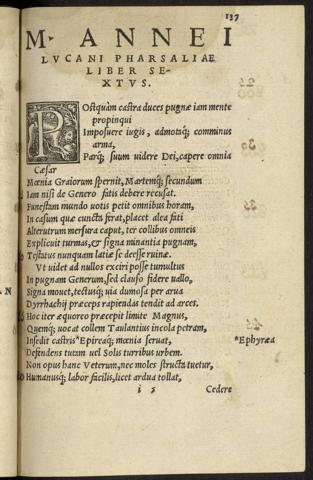 137
M. ANNEI
LVCANI PHARSALIAE
LIBER SE-
XTVS.
POstquàm castra duces pugnæ iam mente
propinqui
Imposuere iugis, admotaq́; comminus
arma,
Parq́; suum uidere Dei, capere omnia
Cæsar
Mœnia Graiorum spernit, Martemq́; secundum
Iam nisi de Genero fatis debere recusat.
Funestam mundo uotis petit omnibus horam,
In casum quæ cuncta ferat, placet alea fati
Alterutrum mersura caput, ter collibus omneis
Explicuit turmas, & signa minantia pugnam,
Testatus nunquam latiæ se deesse ruinæ.
Vt uidet ad nullos exciri posse tumultus
In pugnam Generum, sed clauso fidere uallo,
Signa mouet, tectusq́; uia dumosa per arua
Dyrrhachij præceps rapiendas tendit ad arces.
Hoc iter æquoreo præcepit limite Magnus,
Quemq́; uocat collem Taulantius incola petram,
Insedit castris *Epireaq́; mœnia seruat,
*Ephyræa
Defendens tutam uel Solis turribus urbem.
Non opus hanc Veterum, nec moles structa tuetur,
Humanusq́; labor facilis, licet ardua tollat,
Cedere